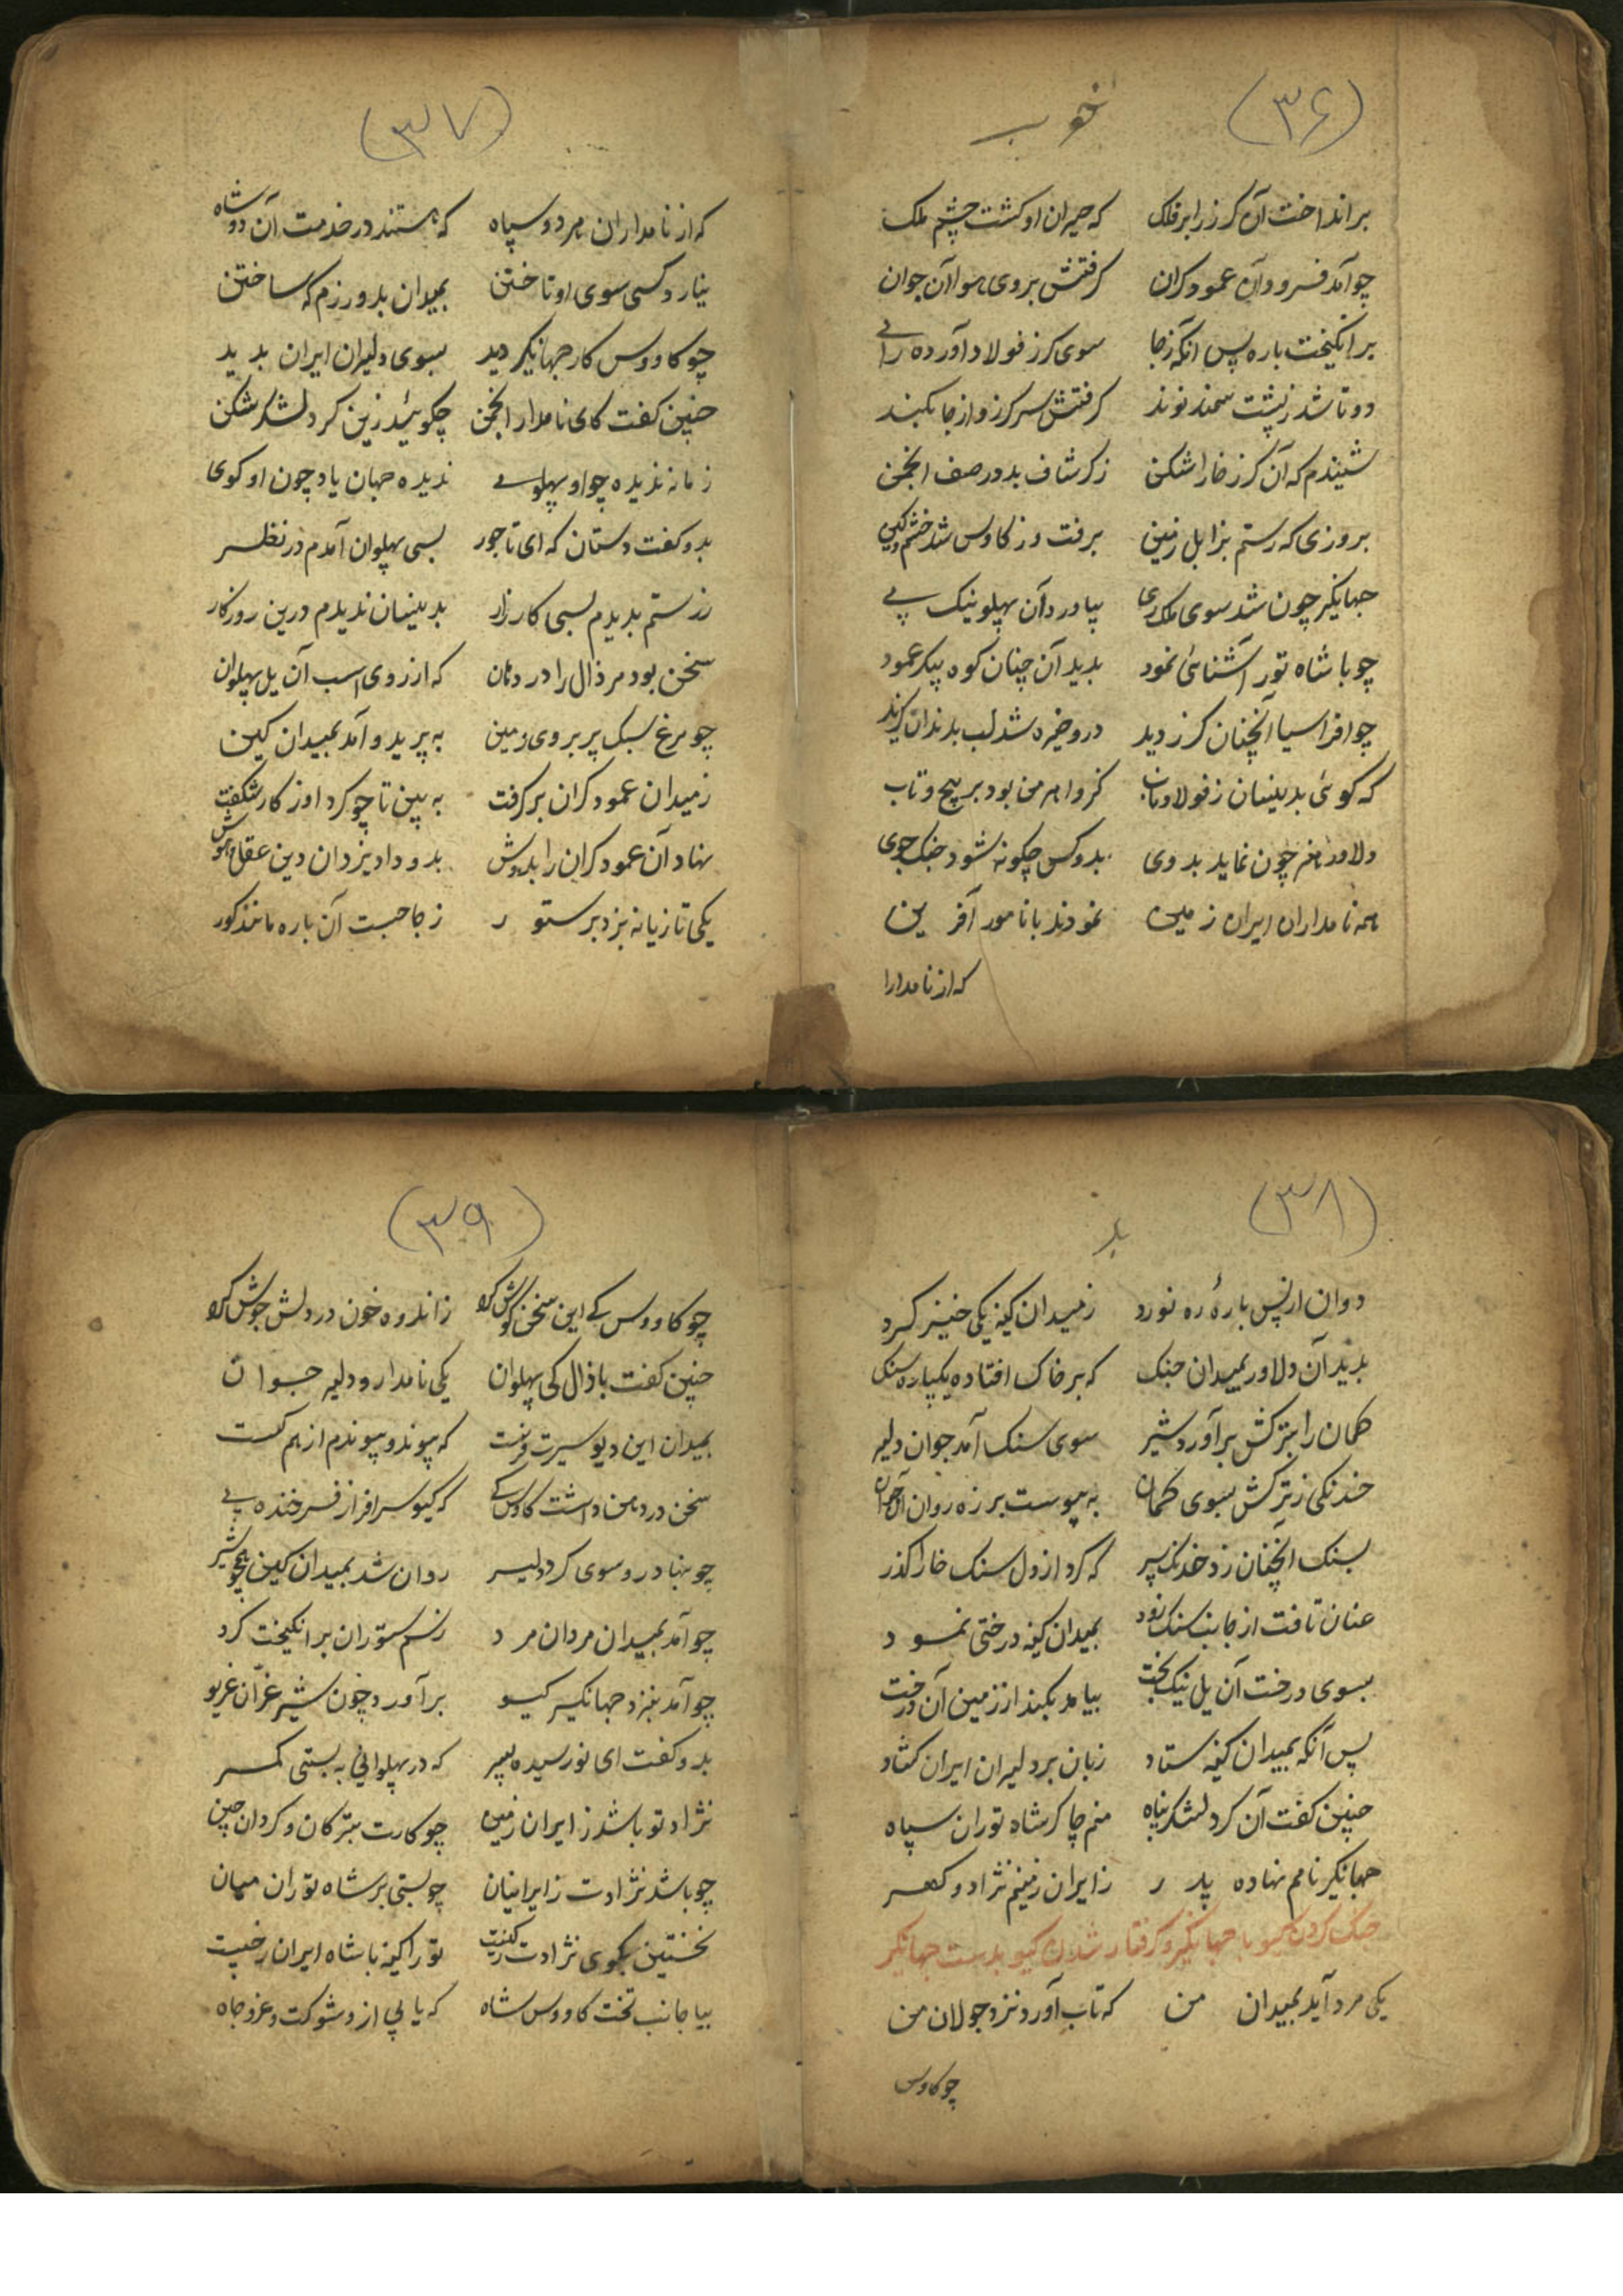 (۳۶)
خوب
برانداخت آن کرز را بر فلک که حیران او کشت چشم ملک
چو آمد فسرود آن عمود کران کرفتش بروی هوا آن جوان
برانکیخت باره پس انکه زجا سوی کرز فولاد آورده رای
دوتا شد ز پشت سمند نوند کرفتش سر کرز و از جا بکند
شنیدم که آن کرز خارا شکن ز کرشاف بد در صف انجمن
بروزی که رستم بزابل زمین برفت و ز کاوس شد خشم و کین
جهانکیر چون شد سوی ملک ری بیاورد آن پهلو نیک پی
چو با شاه توران آشنائی نمود بدید آن چنان کوه پیکر عمود
چو افراسیا آنچنان کرز دید درو خیره شد لب بدندان کزید
که کوئی بدینسان ز فولاد ناب کزو نام من بود بر پیچ و تاب
دلاور هنر چون نماید بدوی بدو کس چکونه شود جنک جوی
همه نامداران ایران زمین نمودند با نامور آفرین
که از نامدارا
(۳۷)
که از نامداران هر دو سپاه که هستند در خدمت آن دو شاه
نیارد کسی سوی او تاختن بمیدان بدو رزم که ساختن
چو کاووس کار جهانکیر دید بسوی دلیران ایران بدید
چنین کفت کای نامدار انجمن چکوئید زین کرد لشکر شکن
زمانه ندیده چو او پهلوی ندیده جهان یاد چون او کوی
بدو کفت دستان که ای تاجور بسی پهلوان آمدم در نظر
ز رستم بدیدم بسی کارزار بدینسان ندیدم درین روزکار
سخن بود مر ذال را در دهان که از روی اسب آن یل پهلوان
چو مرغ سبک پر بروی زمین به پرید و آمد بمیدان کین
ز میدان عمود کران بر کرفت به بین تا چو کرد او ز کار شکفت
نهاد آن عمود کران را بدوش بدو داد یزدان دین عقل و هوش
یکی تازیانه بزد بر ستور ز جا جست آن باره مانند کور
(۳۸)
بد
دوان از پس بارهٔ ره نورد ز میدان کینه یکی خیز کرد
بدید آن دلاور بمیدان جنک که بر خاک افتاده یکپاره سنک
کمان را بترکش برآورد شیر سوی سنک آمد جوان دلیر
خدنکی ز ترکش بسوی کمان به پیوست بر زه روان آن جوان
بسنک آنچنان زد خدنک سپر که کرد از دل سنک خارا کذر
عنان تافت از جانب سنک زود بمیدان کینه درختی نمود
بسوی درخت آن یل نیک بخت بیامد بکند از زمین آن درخت
پس آنکه بمیدان کینه ستاد زبان بر دلیران ایران کشاد
چنین کفت آن کرد لشکر پناه منم چاکر شاه توران سپاه
جهانکیر نامم نهاده پدر ز ایران زمینم نژاد و کهر
جنک کردن کیو با جهانکیر و کرفتار شدن کیو بدست جهانکیر
یکی مرد آید بمیدان من که تاب آورد نزد جولان من
چو کاوس
(۳۹)
چو کاووس کی این سخن کوش کرد ز اندوه خون در دلش جوش کرد
چنین کفت با ذال کی پهلوان یکی نامدار و دلیر جوان
بمیدان این دیو سیرت فرست که پیوند و پیوندم از هم کسست
سخن در دهن داشت کاوس کی که کیو سرافراز فرخنده پی
چو بنهاد رو سوی کرد دلیر روان شد بمیدان کین همچو شیر
چو آمد بمیدان مردان مرد ز سم ستوران برانکیخت کرد
چو آمد بنزد جهانکیر کیو برآورد چون شیر غرّان غریو
بدو کفت ای نورسیده پسر که در پهلوانی به بستی کمر
نژاد تو باشد ز ایران زمین چو کارت بترکان و کردان چین
چو باشد نژادت ز ایرانیان چو بستی بر شاه توران میان
نخستین بکوی نژادت ز کیست تو را کینه با شاه ایران ز چیست
بیا جانب تخت کاووس شاه که یابی ازو شوکت و عز و جاه